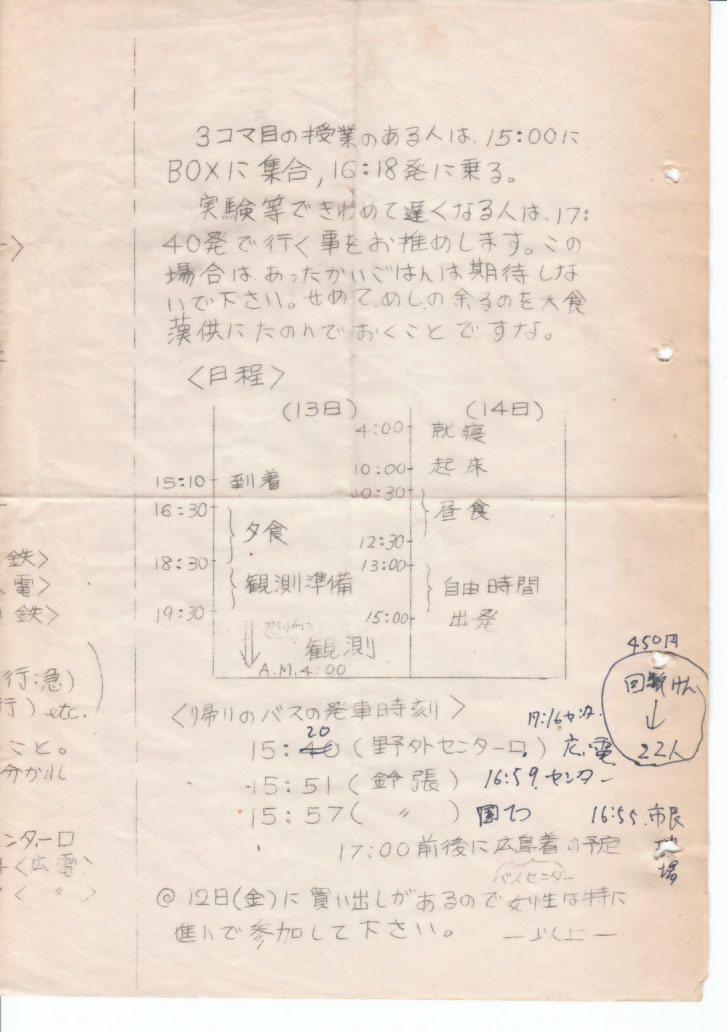 3コマ目の授業のある人は、15:00に
BOXに集合,16:18発に乗る。
実験等できわめて遅くなる人は、17:
40発で行く事をお推めします。この
場合は、あったかいごはんは期待しな
いで下さい。せめて、めしの余るのを大食
漢供にたのんでおくことですな。
〈日程〉
(13日) (14日)
4:00 就寝
10:00 起床
15:10 到着
10:30
16:30
昼食
夕食
12:30
18:30 13:00
観測準備 自由時間
19:30 15:00 出発
観測
A.M.4:00
450円
回数けん
↓
22人
〈帰りのバスの発車時刻〉
17:16センター
20
15:40(野外センター口) 広電
15:51(鈴張) 16:59.センター
15:57( 〃 ) 国てつ 16:55.市民球場
17:00前後に広島着の予定
バスセンター
@ 12日(金)に買い出しがあるので女性は特に
進んで参加して下さい。 ―以上―
鉄〉
電〉
鉄〉
行:急)
行) etc.
こと。
分かれ
ンター口
〈広電〉
〈 〃 〉